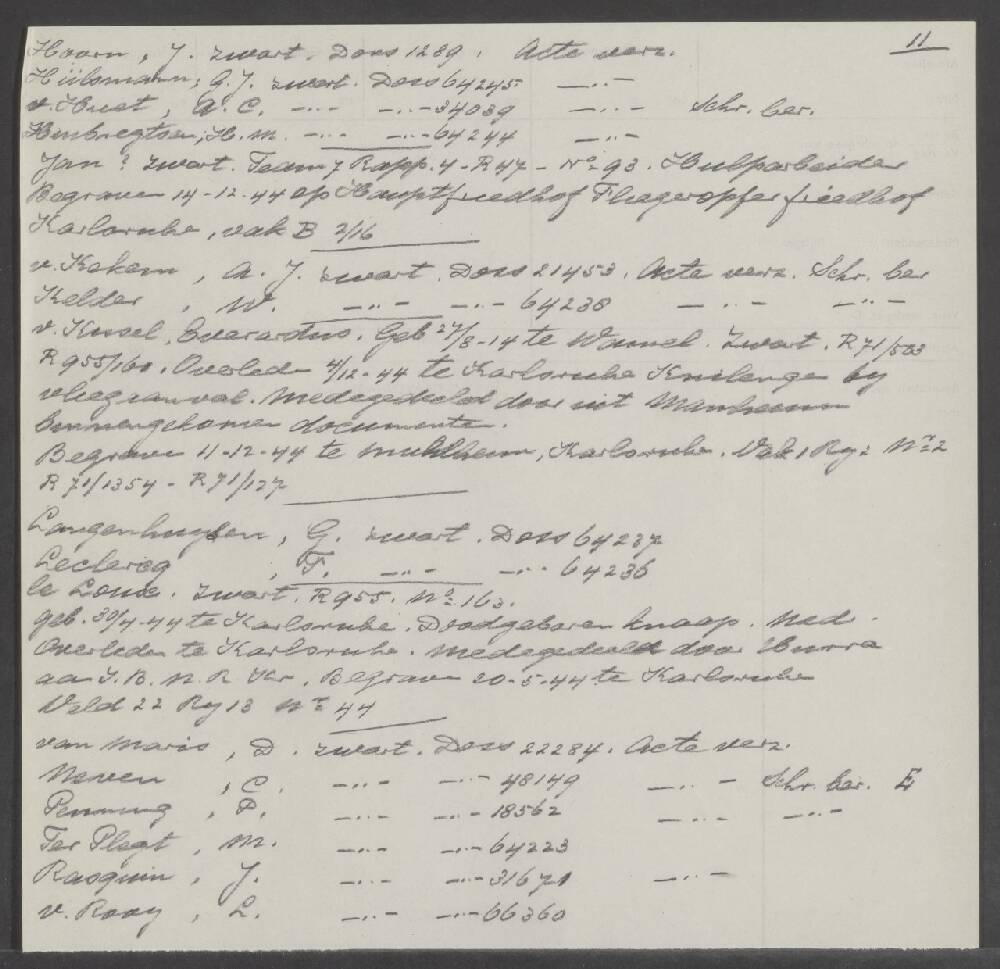 11
Hoorn, J. zwart. Doss 1289. Acte verz.
Hülsmann, G.J. zwart. Doss 64245 —..—
v. Huet, A.C. —..— —..— 34039 —..— Schr. ber.
H.M. —..— —..— 64244 —..—
Jan? zwart. Team 7 Rapp. 4 - R47 - No 93. Hulparbeider
Begraven 14-12-44 op Hauptfriedhof Fliegeropferfriedhof
Karlsruhe, vak B 2/16
v. Kekem, A.J. zwart. Doss 21453. Acte verz. Schr. ber
Kelder, W. —..— —..— 64238 —..— —..—
v. Kessel, Everardus. Geb 27/8-14 te Wamel. Zwart. R71/503
R955/160. Overleden 4/12-44 te Karlsruhe by
vliegaanval. Medegedeeld door uit Manheim
binnengekomen documenten.
Begraven 11-12-44 te Muhlheim, Karlsruhe. Vak 1 Ry: 2 No 2
R71/1354 - R71/127
Langenhuysen, G. zwart. Doss 64237
Leclercq, F. —..— —..— 64236
le Loux. zwart. R955. No 163.
geb. 30/4-44 te Karlsruhe. Doodgeboren knaap. Ned.
Overleden te Karlsruhe. Medegedeeld door
aan I.B.N.R. Kr. Begraven 20-5-44 te Karlsruhe
Veld 22 Ry 13 No 44
van Maris, D. zwart. Doss 22284. Acte verz.
C. —..— —..— 48149 —..— Schr. ber. E
Penning, P. —..— —..— 18562 —..— —..—
Ter Plegt, M. —..— —..— 64223
Rasquin, J. —..— —..— 31671 —..—
v. Rooy, L. —..— —..— 66360